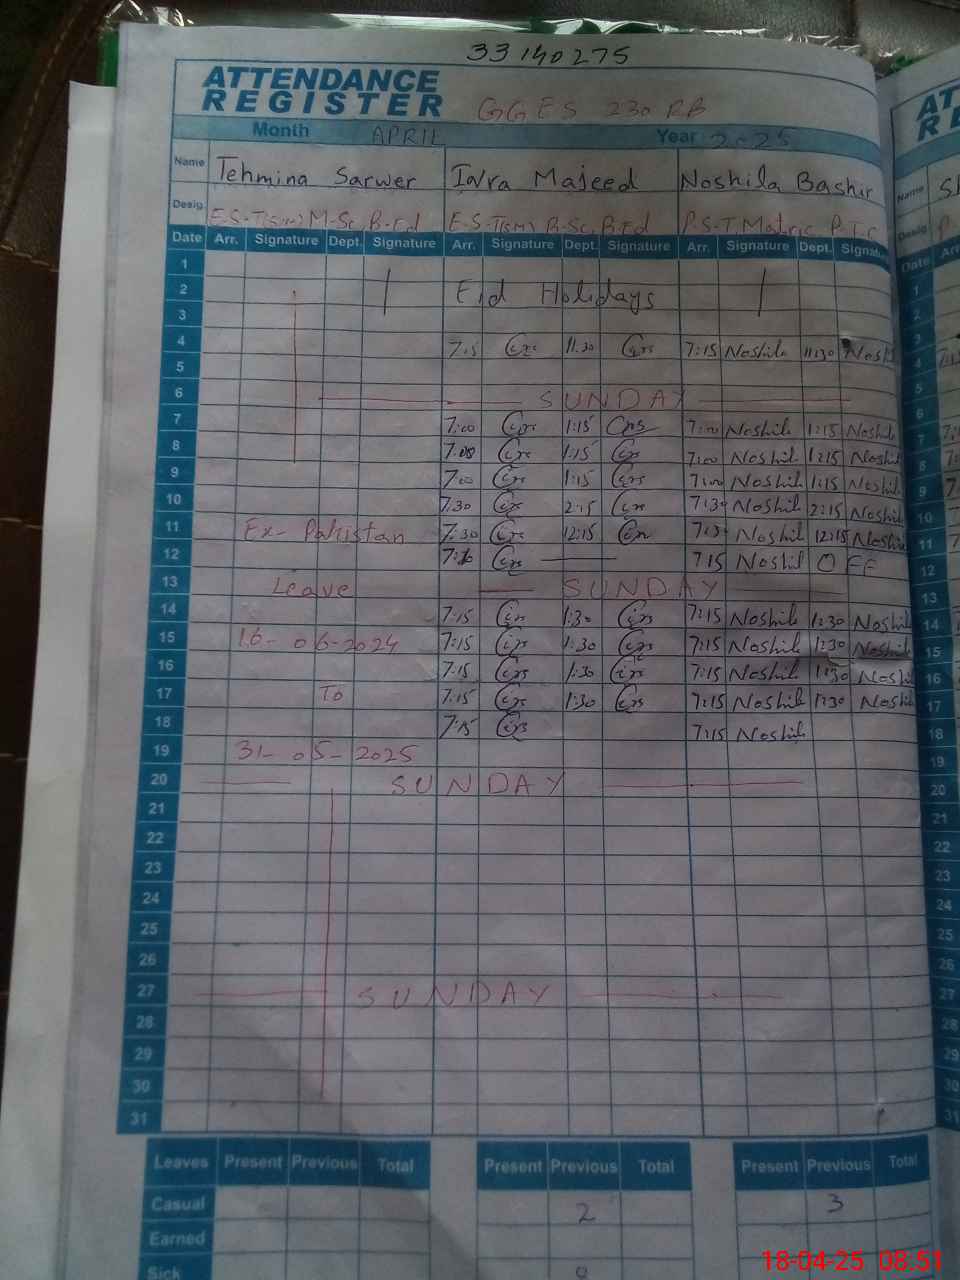 33140275
ATTENDANCE
REGISTER GGES 230 RB
Month APRIL Year 2025
Name Tehmina Sarwer Inra Majeed Noshila Bashir
Desig. E.S.T(sm) M-Sc, B-Ed E.S-T(sm) B-Sc, B.Ed P.S-T Matric P.T.C
Date Arr. Signature Dept. Signature Arr. Signature Dept. Signature Arr. Signature Dept. Signatu
1
2 Eid Holidays
3
4 7:15 11:30 7:15 Noshila 11:30 Nosh
5
6 SUNDAY
7 7:00 1:15 7:00 Noshil 1:15 Noshil
8 7:00 1:15 7:00 Noshil 1:15 Noshil
9 7:00 1:15 7:00 Noshil 1:15 Noshil
10 7:30 2:15 7:30 Noshil 2:15 Noshil
11 Ex-Pakistan 7:30 12:15 7:30 Noshil 12:15 Noshil
12 7:15 Noshil OFF
13 Leave SUNDAY
14 7:15 1:30 7:15 Noshil 1:30 Noshil
15 16-06-2024 7:15 1:30 7:15 Noshil 1:30 Noshil
16 7:15 1:30 7:15 Noshil 1:30 Noshil
17 To 7:15 1:30 7:15 Noshil 1:30 Noshil
18 7:15 7:15 Noshil
19 31-05-2025
20 SUNDAY
21
22
23
24
25
26
27 SUNDAY
28
29
30
31
Leaves Present Previous Total Present Previous Total Present Previous Total
Casual 2 3
Earned
Sick
AT
RE
Name
Desig
Date Arr
1
2
3
4
5
6
7
8
9
10
11
12
13
14
15
16
17
18
19
20
21
22
23
24
25
26
27
28
29
30
31
18-04-25 08:51